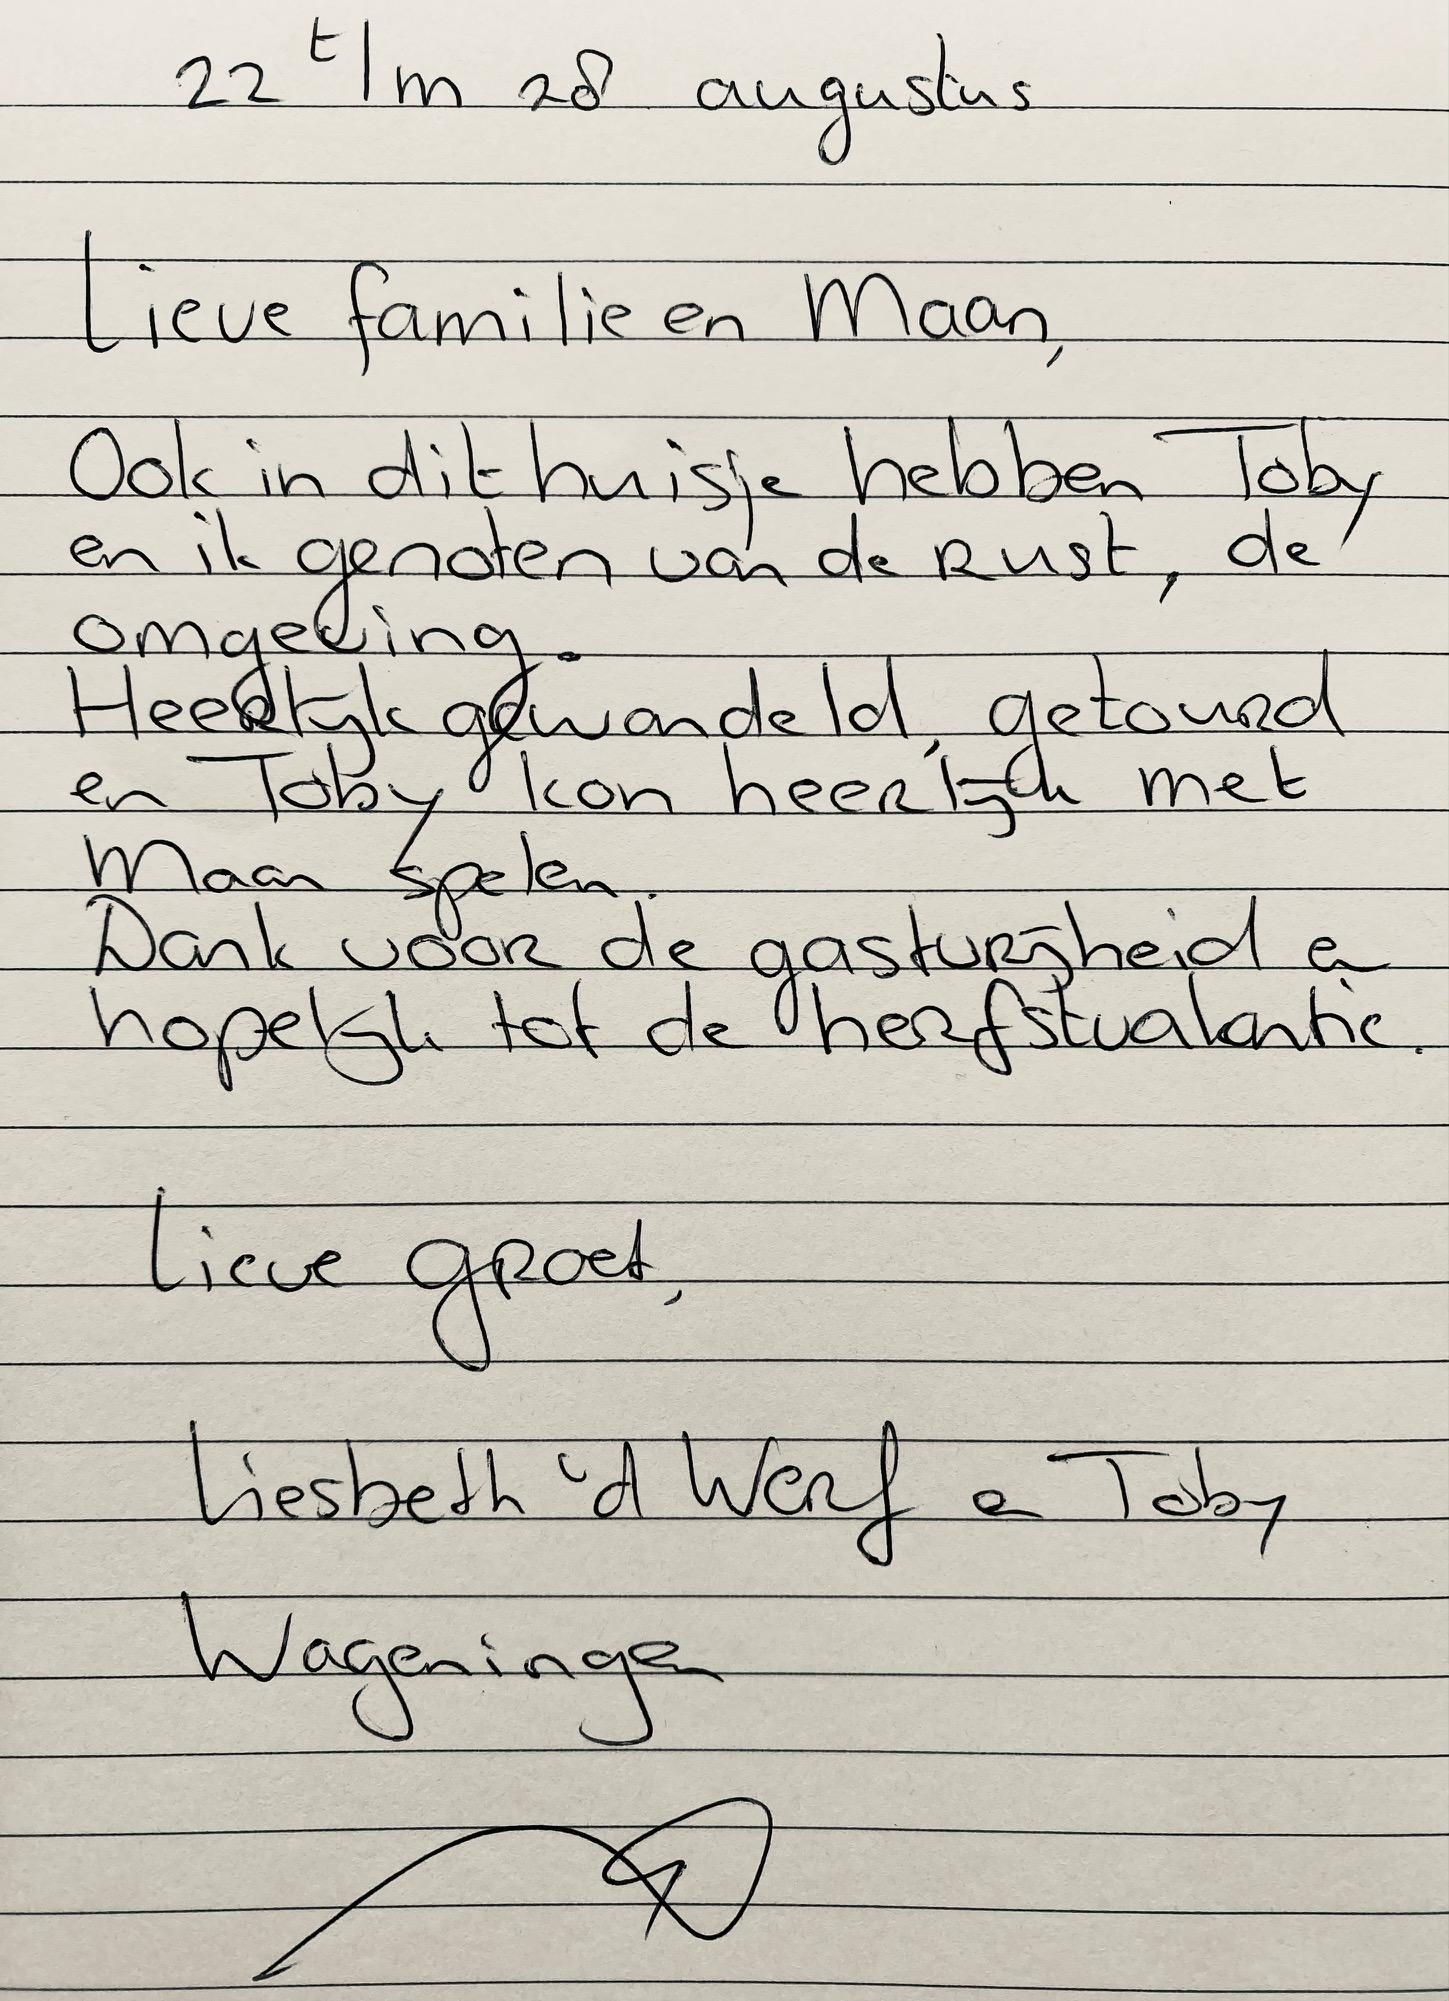 22 t/m 28 augustus
Lieve familie en Maan,
Ook in dit huisje hebben Toby
en ik genoten van de rust, de
omgeving.
Heerlijk gewandeld, getourd
en Toby kon heerlijk met
Maan spelen.
Dank voor de gastvrijheid en
hopelijk tot de herfstvakantie.
Lieve groet,
Liesbeth 'd Werf en Toby
Wageningen